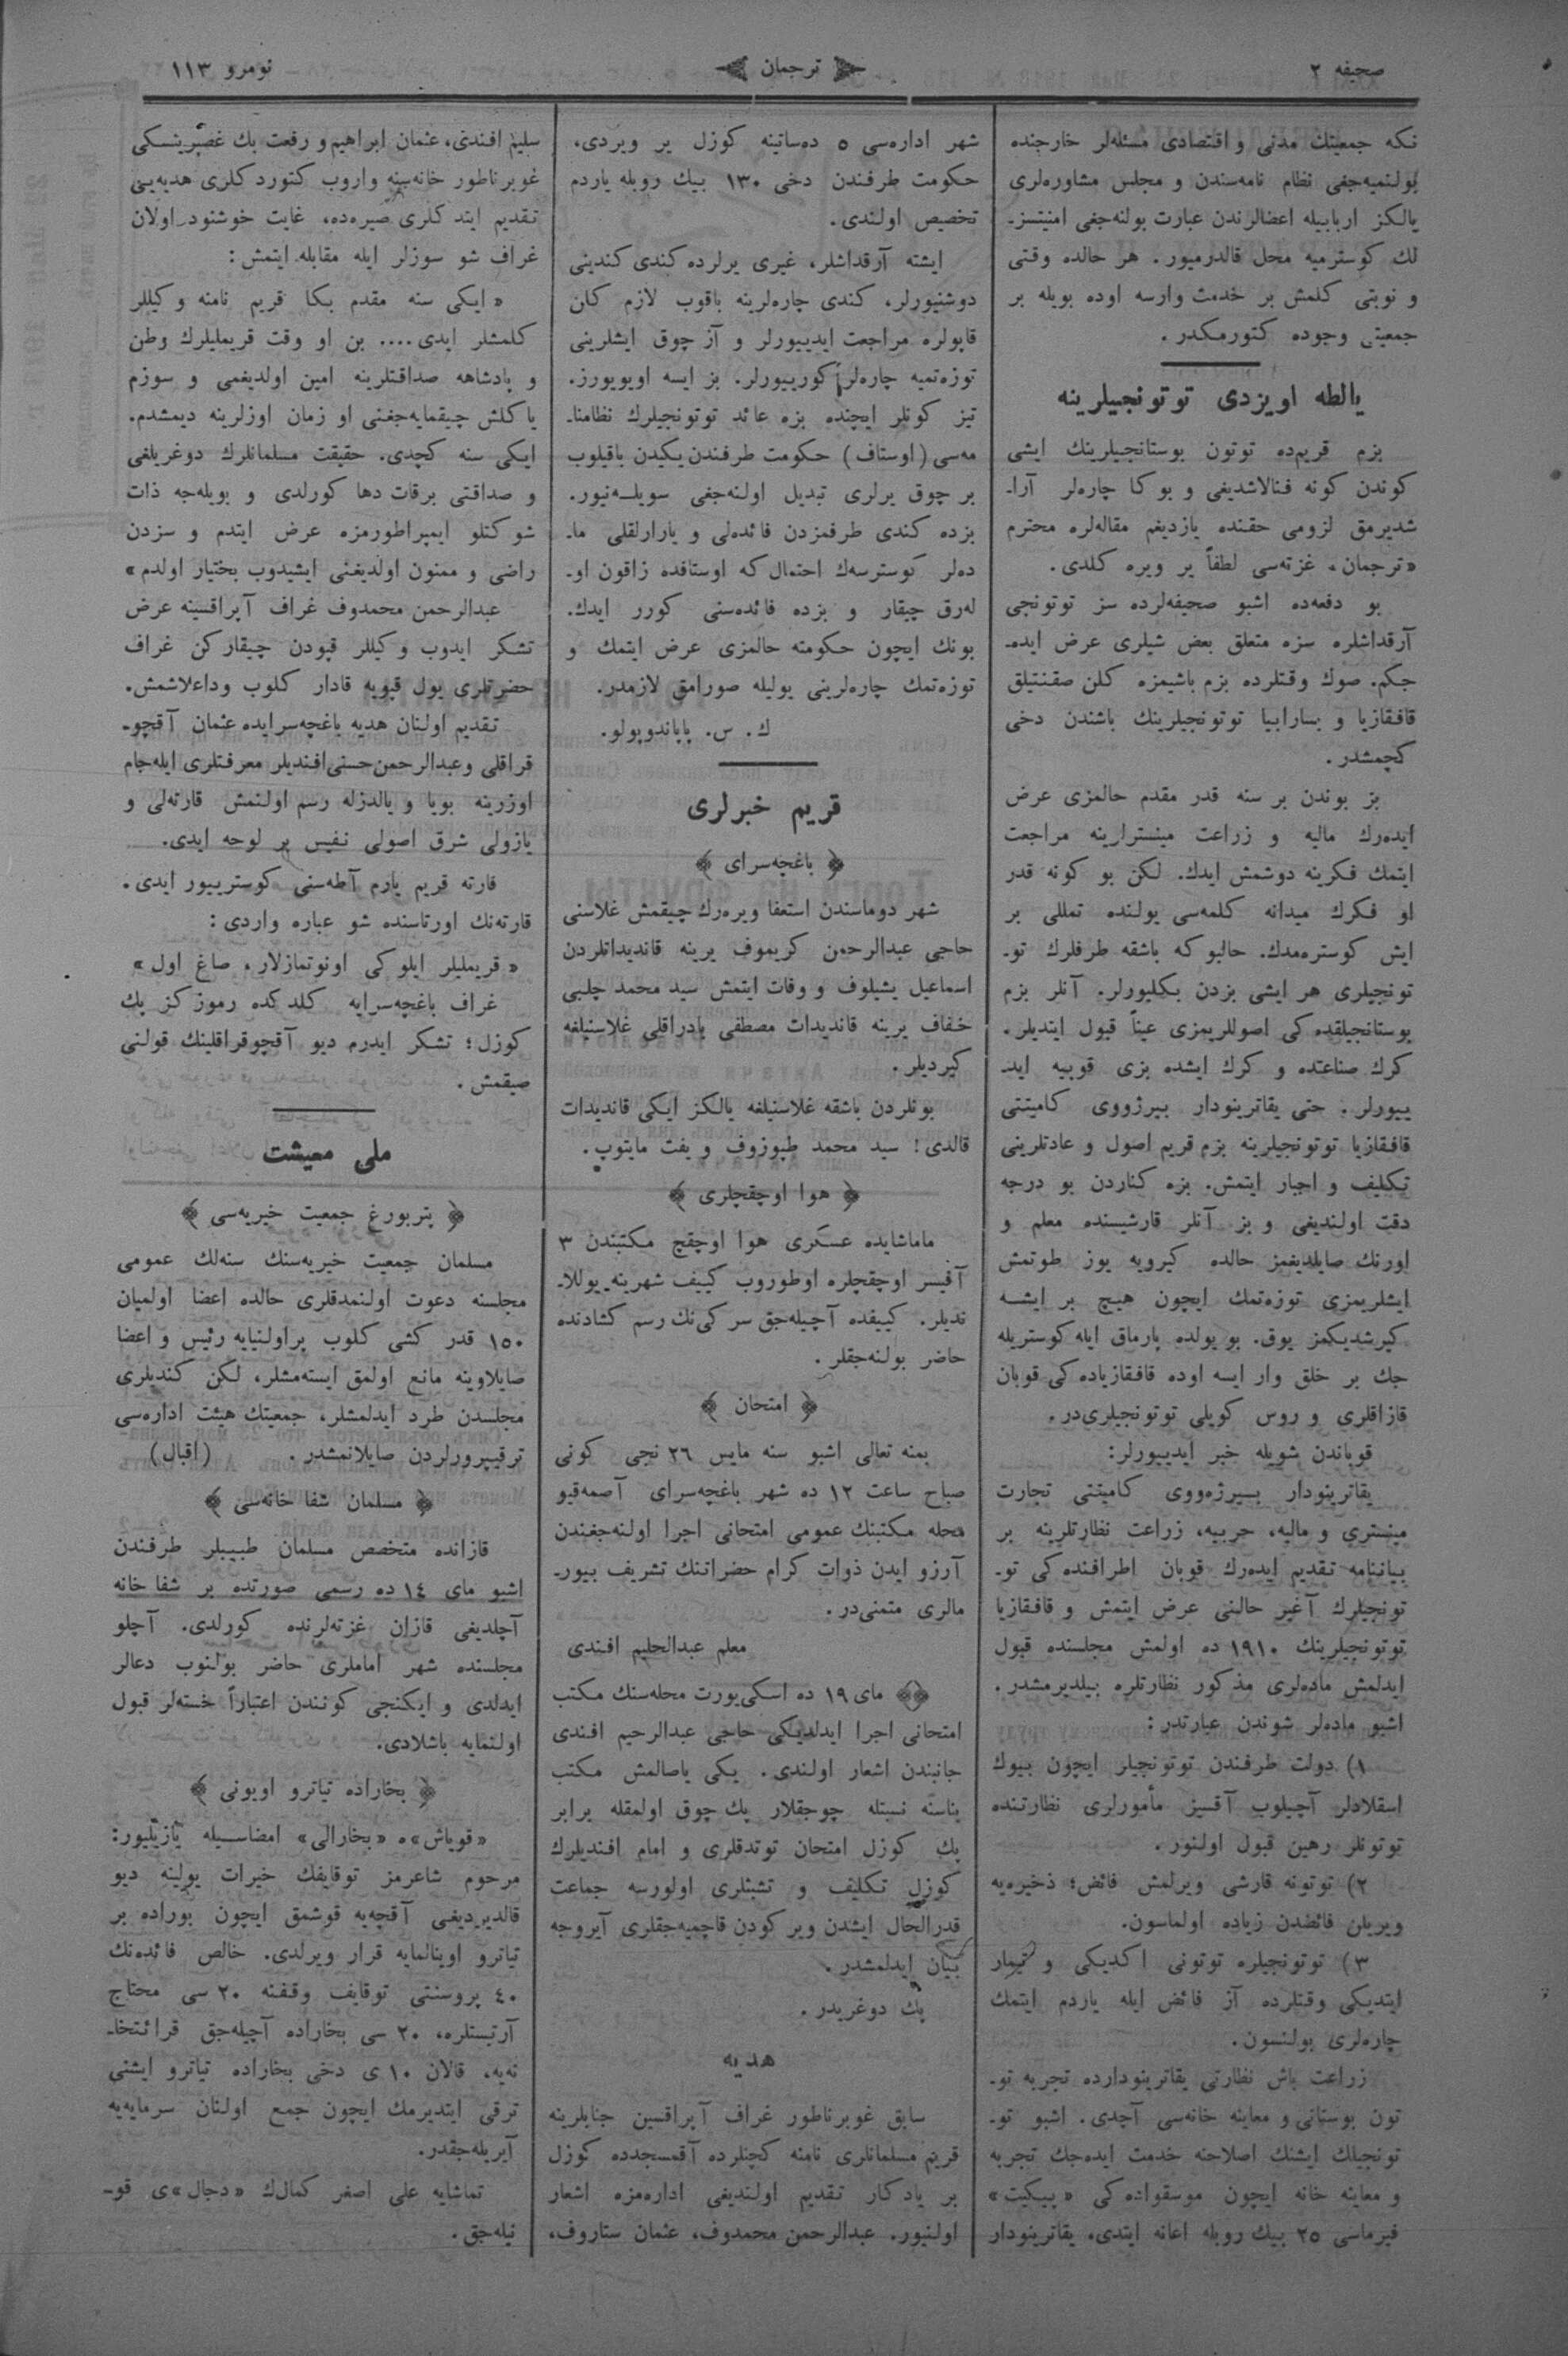 صحیفه ٢
ترجمان
نومرو ١١٣
نكه جمعیتك مدنی و اقتصادی مسئله‌لر خارجنده
بولنمیه‌جغی نظام نامه‌سندن و مجلس مشاوره‌لری
یالكز اربابیله اعضالرندن عبارت بولنه‌جغی امنیتسز-
لك كوسترمیه محل قالدرمیور. هر حالده وقتی
و نوبتی كلمش بر خدمت وارسه اوده بویله بر
جمعیتی وجوده كتورمكدر.
یالطه اویزدی توتونجیلرینه
بزم قریم‌ده توتون بوستانجیلرینك ایشی
كوندن كونه فنالاشدیغی و بوكا چاره‌لر آرا-
شدیرمق لزومی حقنده یازدیغم مقاله‌لره محترم
«ترجمان» غزته‌سی لطفاً یر ویره كلدی.
بو دفعه‌ده اشبو صحیفه‌لرده سز توتونجی
آرقداشلره سزه متعلق بعض شیلری عرض ایده-
جكم. صوك وقتلرده بزم باشیمزه كلن صقنتیلق
قافقازیا و بسارابیا توتونجیلرینك باشندن دخی
كچمشدر.
بز بوندن بر سنه قدر مقدم حالمزی عرض
ایده‌رك مالیه و زراعت مینسترلرینه مراجعت
ایتمك فكرینه دوشمش ایدك. لكن بو كونه قدر
او فكرك میدانه كلمه‌سی یولنده تمللی بر
ایش كوستره‌مدك. حالبوكه باشقه طرفلرك تو-
تونجیلری هر ایشی بزدن بكلیورلر. آنلر بزم
بوستانجیلقده‌كی اصوللریمزی عیناً قبول ایتدیلر.
كرك صناعتده و كرك ایشده بزی قوپیه اید-
ییورلر. حتی یقاترینودار بیرژووی كامیتتی
قافقازیا توتونجیلرینه بزم قریم اصول و عادتلرینی
تكلیف و اجبار ایتمش. بزه كناردن بو درجه
دقت اولندیغی و بز آنلر قارشیسنده معلم و
اورنك صایلدیغمز حالده كیرویه یوز طوتمش
ایشلریمزی توزه‌تمك ایچون هیچ بر ایشـه
كیرشدیكمز یوق. بو یولده پارماق ایله كوستریله
جك بر خلق وار ایسه اوده قافقازیاده‌كی قوبان
قازاقلری و روس كویلی توتونجیلری‌در.
قوباندن شویله خبر ایدییورلر:
یقاترینودار بیرژه‌ووی كامیتتی تجارت
مینستری و مالیه، حربیه، زراعت نظارتلرینه بر
بیاننامه تقدیم ایده‌رك قوبان اطرافنده‌كی تو-
تونجیلرك آغیر حالنی عرض ایتمش و قافقازیا
توتونجیلرینك ١٩١٠ ده اولمش مجلسنده قبول
ایدلمش ماده‌لری مذكور نظارتلره بیلدیرمشدر.
اشبو ماده‌لر شوندن عبارتدر:
١) دولت طرفندن توتونجیلر ایچون بیوك
اسقلادلر آچیلوب آقسیز مأمورلری نظارتنده
توتونلر رهین قبول اولنور.
٢) توتونه قارشی ویرلمش فائض؛ ذخیره‌یه
ویریلن فائضدن زیاده اولماسون.
٣) توتونجیلره توتونی اكدیكی و تیمار
ایتدیكی وقتلرده آز فائض ایله یاردم ایتمك
چاره‌لری بولنسون.
زراعت باش نظارتی یقاترینودارده تجربه تو-
تون بوستانی و معاینه خانه‌سی آچدی. اشبو تو-
تونجیلك ایشنك اصلاحنه خدمت ایده‌جك تجربه
و معاینه خانه ایچون موسقواده‌كی
فیرماسی ٢٥ بیك روبله اعانه ایتدی، یقاترینودار
شهر اداره‌سی ٥ ده‌ساتینه كوزل یر ویردی،
حكومت طرفندن دخی ١٣٠ بیك روبله یاردم
تخصیص اولندی.
ایشته آرقداشلر، غیری یرلرده كندی كندینی
دوشنیورلر، كندی چاره‌لرینه باقوب لازم كلن
قاپولره مراجعت ایدییورلر و آز چوق ایشلرینی
توزه‌تمیه چاره‌لر كورییورلر. بز ایسه اویویورز.
تیز كونلر ایچنده بزه عائد توتونجیلرك نظامنا-
مه‌سی (اوستاف) حكومت طرفندن یكیدن باقیلوب
بر چوق یرلری تبدیل اولنه‌جغی سویلـه‌نیور.
بزده كندی طرفمزدن فائده‌لی و یارارلقلی ما-
ده‌لر كوسترسه‌ك احتمال‌كه اوستافده زاقون او-
له‌رق چیقار و بزده فائده‌سنی كورر ایدك.
بونك ایچون حكومته حالمزی عرض ایتمك و
توزه‌تمك چاره‌لرینی یولیله صورامق لازمدر.
ك. س. پاپاندوپولو.
قریم خبرلری
﴿ باغچه‌سرای ﴾
شهر دوماسندن استعفا ویره‌رك چیقمش غلاسنی
حاجی عبدالرحمن كریموف یرینه قاندیداتلردن
اسماعیل یشیلوف و وفات ایتمش سید محمد چلبی
خفاف یرینه قاندیدات مصطفی بادراقلی غلاسنیلغه
كیردیلر.
بونلردن باشقه غلاسنیلغه یالكز ایكی قاندیدات
قالدی: سید محمد طبوزوف و یفت مایتوپ.
﴿ هوا اوچقچلری ﴾
ماماشایده عسكری هوا اوچقچ مكتبندن ٣
آفیسر اوچقچلره اوطوروب كییف شهرینه یوللا-
ندیلر. كییفده آچیله‌جق سركی‌نك رسم كشادنده
حاضر بولنه‌جقلر.
﴿ امتحان ﴾
بمنه تعالی اشبو سنه مایس ٢٦ نجی كونی
صباح ساعت ١٢ ده شهر باغچه‌سرای آصمه‌قیو
محله مكتبنك عمومی امتحانی اجرا اولنه‌جغندن
آرزو ایدن ذوات كرام حضراتنك تشریف بیور-
مالری متمنی‌در.
معلم عبدالحلیم افندی
﴿﴾ مای ١٩ ده اسكی‌یورت محله‌سنك مكتب
امتحانی اجرا ایدلدیكی حاجی عبدالرحیم افندی
جانبندن اشعار اولندی. یكی یاصالمش مكتب
بناسنه نسبتله چوجقلار پك چوق اولمقله برابر
پك كوزل امتحان توتدقلری و امام افندیلرك
كوزل تكلیف و تشبثلری اولورسه جماعت
قدرالحال ایشدن ویركودن قاچمیه‌جقلری آیروجه
بیان ایدلمشدر.
پك دوغریدر.
هدیه
سابق غوبرناطور غراف آپراقسین جنابلرینه
قریم مسلمانلری نامنه كچنلرده آقمسجدده كوزل
بر یادكار تقدیم اولندیغی اداره‌مزه اشعار
اولنیور. عبدالرحمن محمدوف، عثمان ستاروف،
سلیم افندی، عثمان ابراهیم و رفعت بك غصپرینسكی
غوبرناطور خانه‌سنه واروب كتوردكلری هدیه‌یی
تقدیم ایتدكلری صیره‌ده، غایت خوشنود اولان
غراف شو سوزلر ایله مقابله ایتمش:
« ایكی سنه مقدم بكا قریم نامنه وكیللر
كلمشلر ایدی.... بن او وقت قریملیلرك وطن
و پادشاهه صداقتلرینه امین اولدیغمی و سوزم
یاكلش چیقمایه‌جغنی او زمان اوزلرینه دیمشدم.
ایكی سنه كچدی. حقیقت مسلمانلرك دوغریلغی
و صداقتی برقات دها كورلدی و بویله‌جه ذات
شوكتلو ایمپراطورمزه عرض ایتدم و سزدن
راضی و ممنون اولدیغنی ایشیدوب بختیار اولدم»
عبدالرحمن محمدوف غراف آپراقسینه عرض
تشكر ایدوب وكیللر قپودن چیقاركن غراف
حضرتلری یول قپویه قادار كلوب وداعلاشمش.
تقدیم اولنان هدیه باغچه‌سرایده عثمان آقچو-
قراقلی و عبدالرحمن حسنی افندیلر معرفتلری ایله جام
اوزرینه بویا و یالدزله رسم اولنمش قارته‌لی و
یازولی شرق اصولی نفیس بر لوحه ایدی.
قارته قریم یارم آطه‌سنی كوسترییور ایدی.
قارته‌نك اورتاسنده شو عباره واردی:
« قریملیلر ایلوكی اونوتمازلار، صاغ اول»
غراف باغچه‌سرایه كلدكده رموزكز پك
كوزل؛ تشكر ایدرم دیو آقچوقراقلینك قولنی
صیقمش.
ملی معیشت
﴿ پتربورغ جمعیت خیریه‌سی ﴾
مسلمان جمعیت خیریه‌سنك سنه‌لك عمومی
مجلسنه دعوت اولنمدقلری حالده اعضا اولمیان
١٥٠ قدر كشی كلوب پراولنیایه رئیس و اعضا
صایلاوینه مانع اولمق ایسته‌مشلر، لكن كندیلری
مجلسدن طرد ایدلمشلر، جمعیتك هیئت اداره‌سی
ترقیپرورلردن صایلانمشدر. (اقبال)
﴿ مسلمان شفا خانه‌سی ﴾
قازانده متخصص مسلمان طبیبلر طرفندن
اشبو مای ١٤ ده رسمی صورتده بر شفا خانه
آچلدیغی قازان غزته‌لرنده كورلدی. آچلو
مجلسنده شهر اماملری حاضر بولنوب دعالر
ایدلدی و ایكنجی كونندن اعتباراً خسته‌لر قبول
اولنمایه باشلادی.
﴿ بخاراده تیاترو اویونی ﴾
«قویاش»ه «بخارالی» امضاسـیله یازیلیور:
مرحوم شاعرمز توقایفك خیرات یولینه دیو
قالدیردیغی آقچه‌یه قوشمق ایچون بوراده بر
تیاترو اوینالمایه قرار ویرلدی. خالص فائده‌نك
٤٠ پروسنتی توقایف وقفنه ٢٠ سی محتاج
آرتیستلره، ٢٠ سی بخاراده آچیله‌جق قرائتخا-
نه‌یه، قالان ١٠ ی دخی بخاراده تیاترو ایشنی
ترقی ایتدیرمك ایچون جمع اولنان سرمایه‌یه
آیریله‌جقدر.
تماشایه علی اصغر كمال‌ك «دجال»ی قو-
نیله‌جق.